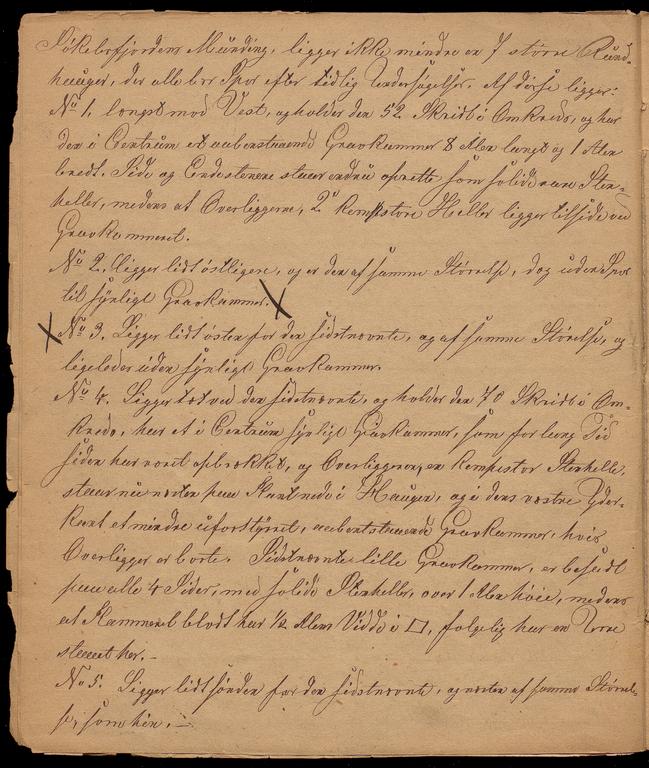 Søkelsfjordens Munding, ligger ikke mindre en 7 større Rund-
hauger, der alle bær Spor efter tidlig Undersøgelser. Af disse ligger:
No 1, længst mod Vest, og holder den 52 Skridt i Omkreds, og har
den i Centrum et aabenstaaende Gravkammer 8 Alen langt og 1 Alen
bredt. Side og Endestenene staar endnu oprette som solide Sten-
heller, medens at Overliggerne, 2 kempestore Heller ligger tilside ved
Gravkammeret.
No 2. Ligger lidt østligere, og er den af samme Størrelse, dog uden Spor
til synligt Gravkammer. X
X No 3. Ligger lidt østen for den sidstnævnte, og af samme Størelse, og
ligeledes uden synligt Gravkammer.
No 4. Ligger tæt ved den sidstnævnte, og holder den 70 Skridt i Om-
kreds, har et i Centrum synligt Gravkammer, som for lang Tid
siden har været opbrækket, og Overliggeren, en kempestor Stenhelle,
staar nu næsten paa Kant nede i Haugen, og i dens vestre Yder-
kant et mindre uforstyrret, aabentstaaende Gravkammer, hvis
Overligger er borte. Sidstnævnte lille Gravkammer, er besadt
paa alle 4 Sider, med solide Stenheller, over 1 Alen høie, medens
at Kammeret blodt har 1/2 Alens Vidde i □, følgelig har en Urne
staaet her. –
No 5. Ligger lidt sønden for den sidstnævnte, og næsten af samme Størrel-
se, som hin. –